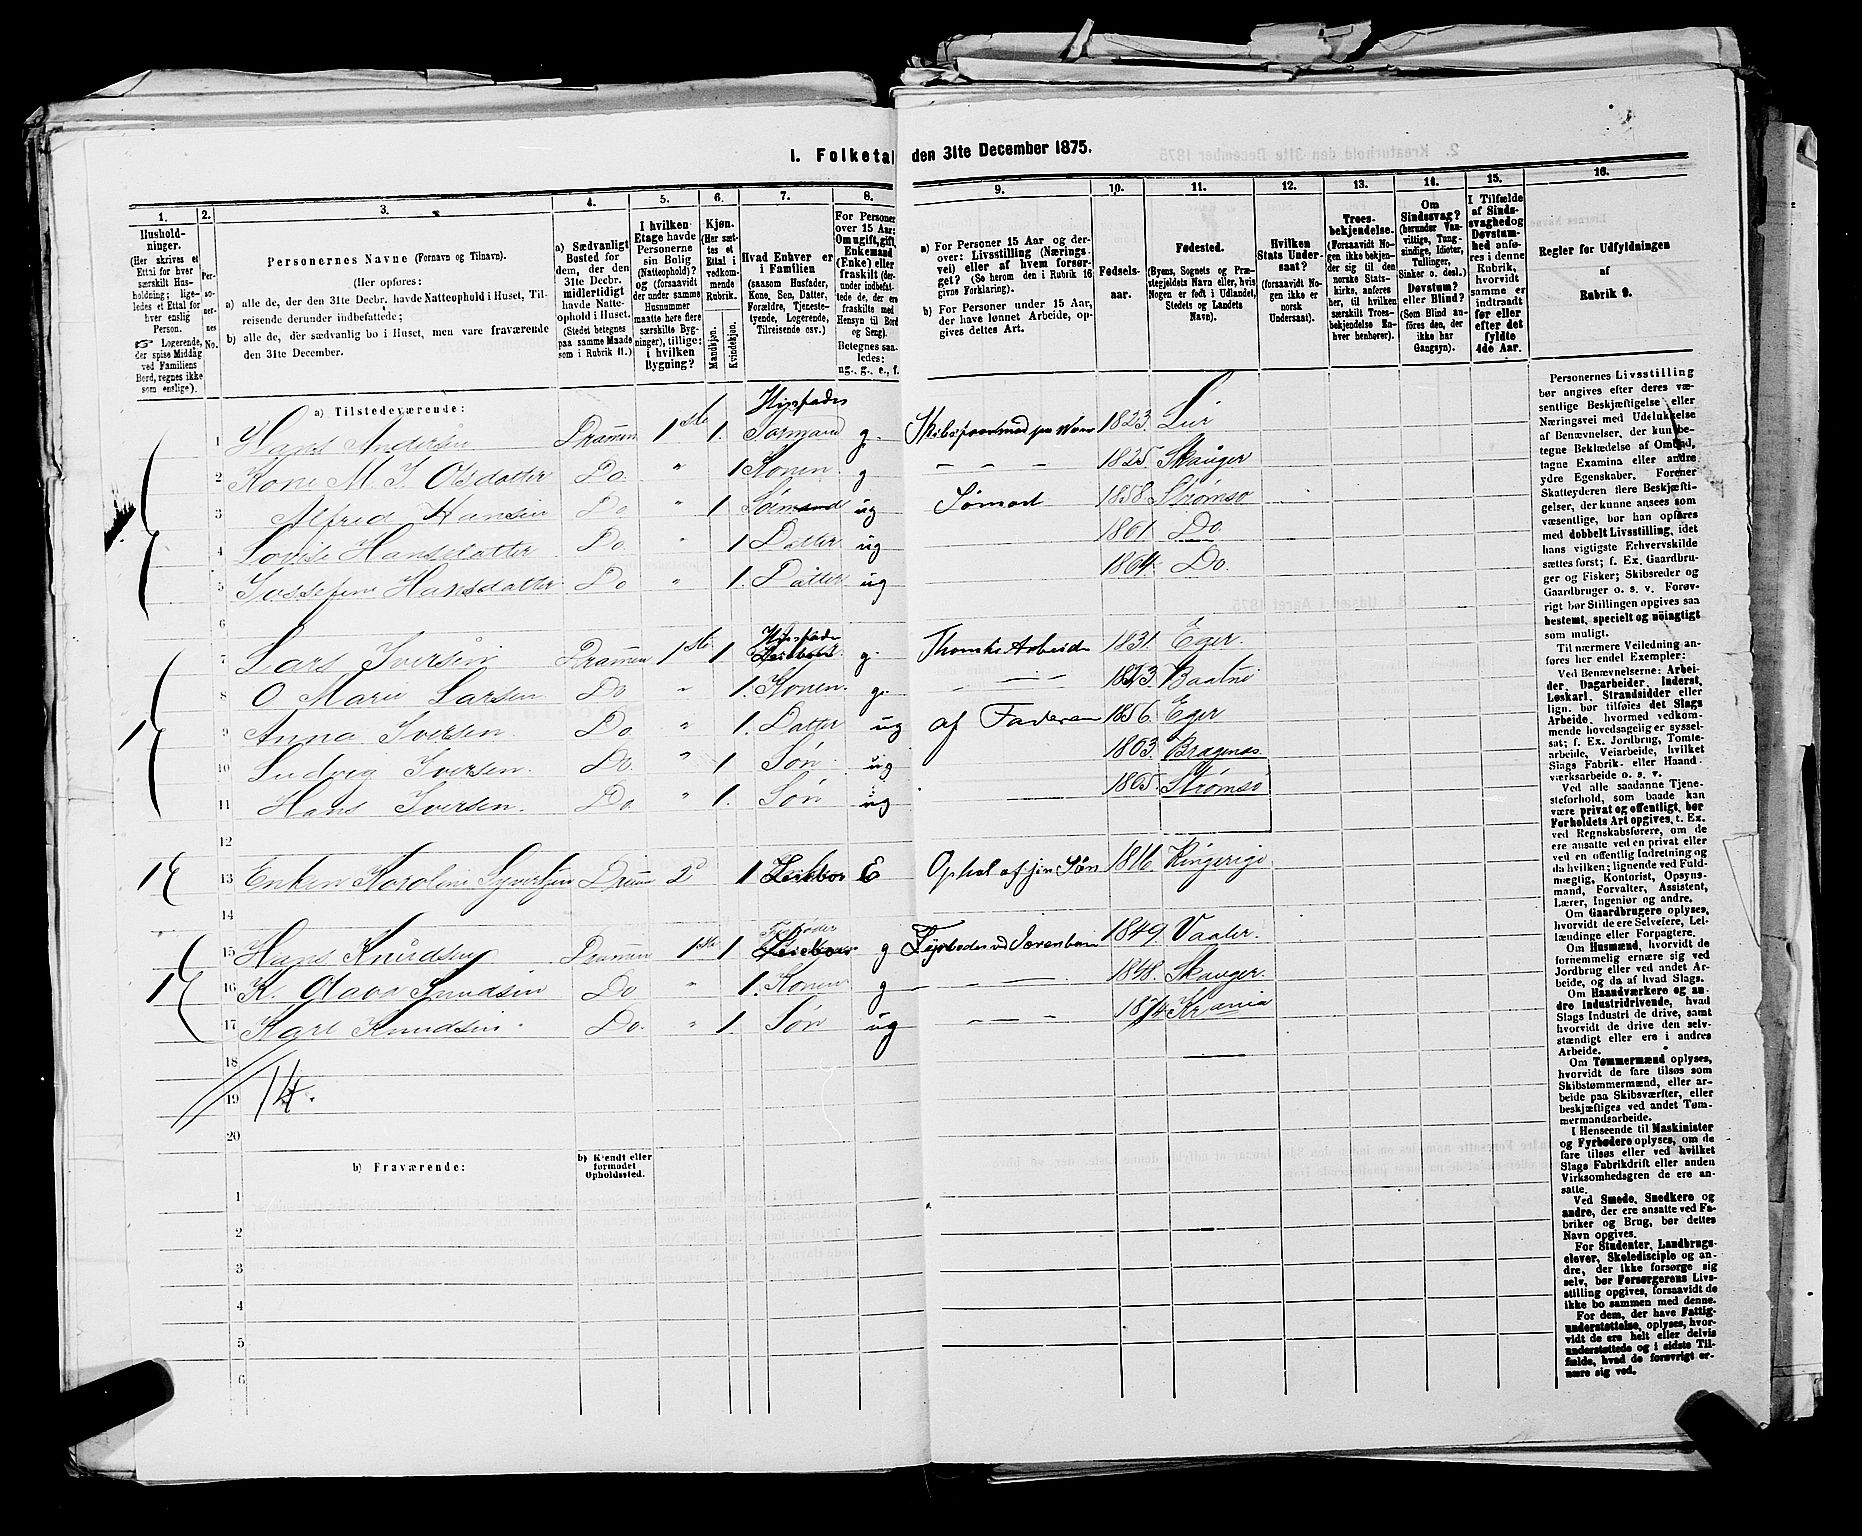 1. Folketal den 31te December 1875.
1. 2. 3. 4. 5. 6. 7. 8. 9. 10. 11. 12. 13. 14. 15. 16.
Hushold-
ninger.
(Her skrives et
Ettal for hver
særskilt Hus-
holdning; lige-
ledes et Ettal for
hver enslig
Person.
☞ Logerende,
der spise Middag
ved Familiens
Bord, regnes ikke
som enslige).
Per-
so-
ner-
nes
No.
Personernes Navne (Fornavn og Tilnavn).
(Her opføres:
a) alle de, der den 31te Decbr. havde Natteophold i Huset, Til-
reisende derunder indbefattede;
b) alle de, der sædvanlig bo i Huset, men vare fraværende
den 31te December.
a) Sædvanligt
Bosted for
dem, der den
31te Decbr.
midlertidigt
havde Natte-
ophold i Huset.
(Stedet betegnes
paa samme Maade
som i Rubrik 11.)
I hvilken
Etage havde
Personerne
sin Bolig
(Natteophold)?
og (forsaavidt
der under samme
Husnummer
maatte høre flere
særskilte Byg-
ninger), tillige:
i hvilken
Bygning?
Kjøn.
(Her sæt-
tes et
Ettal i
vedkom-
mende
Rubrik.
Mandkjøn.
Kvindekjøn.
Hvad Enhver er
i Familien
(saasom Husfader,
Kone, Søn, Datter,
Forældre, Tjeneste-
tyende, Logerende,
Tilreisende osv.)
For Personer
over 15 Aar:
Om ugift, gift,
Enkemand
(Enke) eller
fraskilt (der-
under indbefat-
tede de, der ere
fraskilte med
Hensyn til Bord
og Seng).
Betegnes saa-
ledes:
ug., g., e., f.
a) For Personer 15 Aar og der-
over: Livsstilling (Nærings-
vei) eller af hvem forsør-
get? (Se herom den i Rubrik 16
givne Forklaring).
b) For Personer under 15 Aar,
der have lønnet Arbeide, op-
gives dettes Art.
Fødsels-
aar.
Fødested.
(Byens, Sognets og Præ-
stegjeldets Navn eller, hvis
Nogen er født i Udlandet,
Stedets og Landets
Navn).
Hvilken
Stats Under-
saat?
(forsaavidt No-
gen ikke er
norsk
Undersaat).
Troes-
bekjendelse.
(Forsaavidt No-
gen ikke bekjen-
der sig til den
norske Stats-
kirke, anføres
her, til hvilken
særskilt Troes-
bekjendelse En-
hver henhører).
Om
Sindssvag?
(herunder Van-
vittige, Tung-
sindige, Idioter,
Tullinger,
Sinker o. desl.)
Døvstum?
eller Blind?
(Som Blind an-
føres den, der
ikke har
Gangsyn).
I Tilfælde
af Sinds-
svaghed og
Døvstum-
hed anfø-
res i denne
Rubrik,
hvorvidt
samme er
indtraadt
før eller
efter det
fyldte
4de Aar.
Regler for Udfyldningen
af
Rubrik 9.
a) Tilstedeværende:
1 Hans Andersen Drammen 1ste 1. Husfader g. 1823. Lier
2 Kone M. J. Olsdatter Do. " 1 Konen g — — — 1825. Skauger
3 Alfred Hansen Do " 1 ug Sømand 1858 Strømsø
4 Lovise Hansdatter Do " 1 Datter ug 1861. Do.
5 Jossefine Hansdatter Do " 1. Datter ug 1864. Do.
6
7 Lars Iversen Drammen 1ste 1 Husfader g. 1831. Eger.
8 O Marie Larsen Do " 1. Konen. g. — — — 1823.
9 Anna Iversen Do " 1. Datter ug af Faderen 1856. Eger
10 Ludvig Iversen. Do. " 1 Søn ug 1863. Bragenæs.
11 Hans Iversen. Do " 1. Søn ug 1865. Strømsø
12
13 Enken Karoline Syvertsen Dramn 2d 1 E 1816. Ringerige
14
15 Hans Knudsen Drammen 1ste 1 g Fyrbøder ved Jærenbanen 1849. Vaaler.
16 K. Olava Knudsen Do " 1. Konen g — — — 1848. Skauger.
17 Karl Knudsen. Do. " 1. Søn ug — — — 1874. Krania
18
19 14.
20
b) Fraværende:
b) Kjendt eller
formodet
Opholdssted.
1
2
3
4
5
6
Personernes Livsstilling
bør angives efter deres væ-
sentlige Beskjæftigelse eller
Næringsvei med Udelukkelse
af Benævnelser, der kun be-
tegne Beklædelse af Ombud,
tagne Examina eller andre
ydre Egenskaber. Forener
Skatteyderen flere Beskjæfti-
gelser, der kunne ansees som
væsentlige, bør han opføres
med dobbelt Livsstilling, idet
hans vigtigste Erhvervskilde
sættes først; f. Ex. Gaardbru-
ger og Fisker; Skibsreder og
Gaardbruger o. s. v. Forøv-
rigt bør Stillingen opgives saa
bestemt, specielt og nøiagtigt
som muligt.
Til nærmere Veiledning an-
føres her endel Exempler:
Ved Benævnelserne: Arbei-
der, Dagarbeider, Inderst,
Løskarl, Strandsidder eller
lign. bør tilføies det Slags
Arbeide, hvormed vedkom-
mende hovedsagelig er syssel-
sat; f. Ex. Jordbrug, Tomte-
arbeide, Veiarbeide, hvilket
Slags Fabrik- eller Haand-
værksarbeide o. s. v.
Ved alle saadanne Tjene-
steforhold, som baade kan
være privat og offentligt, bør
Forholdets Art opgives, f. Ex.
ved Regnskabsførere, om de
ere ansatte ved en privat eller
ved en offentlig Indretning og
da hvilken; lignende ved Fuld-
mægtig, Kontorist, Opsyns-
mand, Forvalter, Assistent,
Lærer, Ingeniør og andre.
Om Gaardbrugere oplyses,
hvorvidt de ere Selveiere, Lei-
lændinge eller Forpagtere.
Om Husmænd, hvorvidt de
fornemmelig ernære sig ved
Jordbrug eller ved andet Ar-
beide, og da af hvad Slags.
Om Haandværkere og an-
dre Industridrivende, hvad
Slags Industri de drive, samt
hvorvidt de drive den selv-
stændigt eller ere i andres
Arbeide.
Om Tømmermænd oplyses,
hvorvidt de fare tilsøs som
Skibstømmermænd, eller ar-
beide paa Skibsværfter, eller
beskjæftiges ved andet Tøm-
mermandsarbeide.
I Henseende til Maskinister
og Fyrbødere oplyses, om de
fare tilsøs eller ved hvilket
Slags Fabrikdrift eller anden
Virksomhedsgren de ere an-
satte.
Ved Smede, Snedkere og
andre, der ere ansatte ved Fa-
briker og Brug, bør dettes
Navn opgives.
For Studenter, Landbrugs-
elever, Skoledisciple og an-
dre, der ikke forsørge sig
selv, bør Forsørgerens Livs-
stilling opgives, forsaavidt de
ikke bo sammen med denne.
For dem, der have Fattig-
understøttelse, oplyses, hvor-
vidt de ere helt eller delvis
understøttede og i sidste Til-
fælde, hvad de forøvrigt er-
nære sig ved.